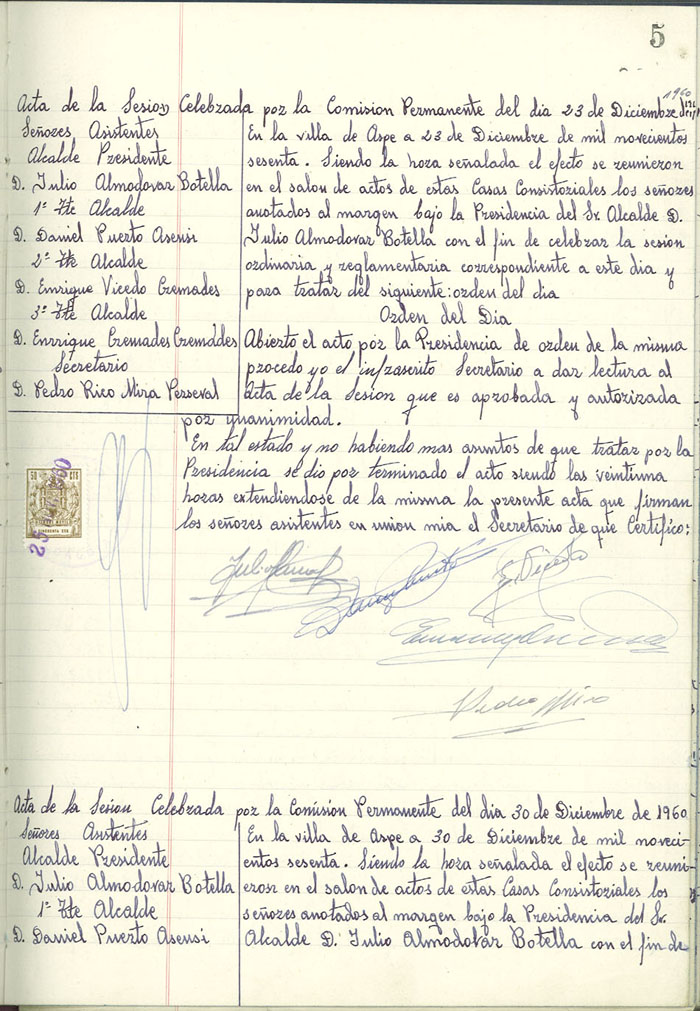 5
Acta de la Sesion Celebrada por la Comision Permanente del dia 23 de Diciembre de 1960
Señores Asistentes
Alcalde Presidente
D. Julio Almodovar Botella
1º Tte Alcalde
D. Daniel Puerto Asensi
2º Tte Alcalde
D. Enrique Vicedo Cremades
3º Tte Alcalde
D. Enrrique Cremades Cremades
Secretario
D. Pedro Rico Mira Perseval
En la villa de Aspe a 23 de Diciembre de mil novecientos
sesenta. Siendo la hora señalada el efecto se reunieron
en el salon de actos de estas Casas Consistoriales los señores
anotados al margen bajo la Presidencia del Sr. Alcalde D.
Julio Almodovar Botella con el fin de celebrar la sesion
ordinaria y reglamentaria correspondiente a este dia y
para tratar del siguiente: orden del dia
Orden del Dia
Abierto el acto por la Presidencia de orden de la misma
procedo yo el infrascrito Secretario a dar lectura al
Acta de la Sesion que es aprobada y autorizada
por unanimidad.
En tal estado y no habiendo mas asuntos de que tratar por la
Presidencia se dio por terminado el acto siendo las veintiuna
horas extendiendose de la misma la presente acta que firman
los señores asistentes en union mia el Secretario de que Certifico:
50 CTS
E. Vicedo
Pedro Mira
Acta de la Sesion Celebrada por la Comision Permanente del dia 30 de Diciembre de 1960
Señores Asistentes
Alcalde Presidente
D. Julio Almodovar Botella
1º Tte Alcalde
D. Daniel Puerto Asensi
En la villa de Aspe a 30 de Diciembre de mil noveci-
entos sesenta. Siendo la hora señalada el efecto se reuni-
eron en el salon de actos de estas Casas Consistoriales los
señores anotados al margen bajo la Presidencia del Sr.
Alcalde D. Julio Almodovar Botella con el fin de